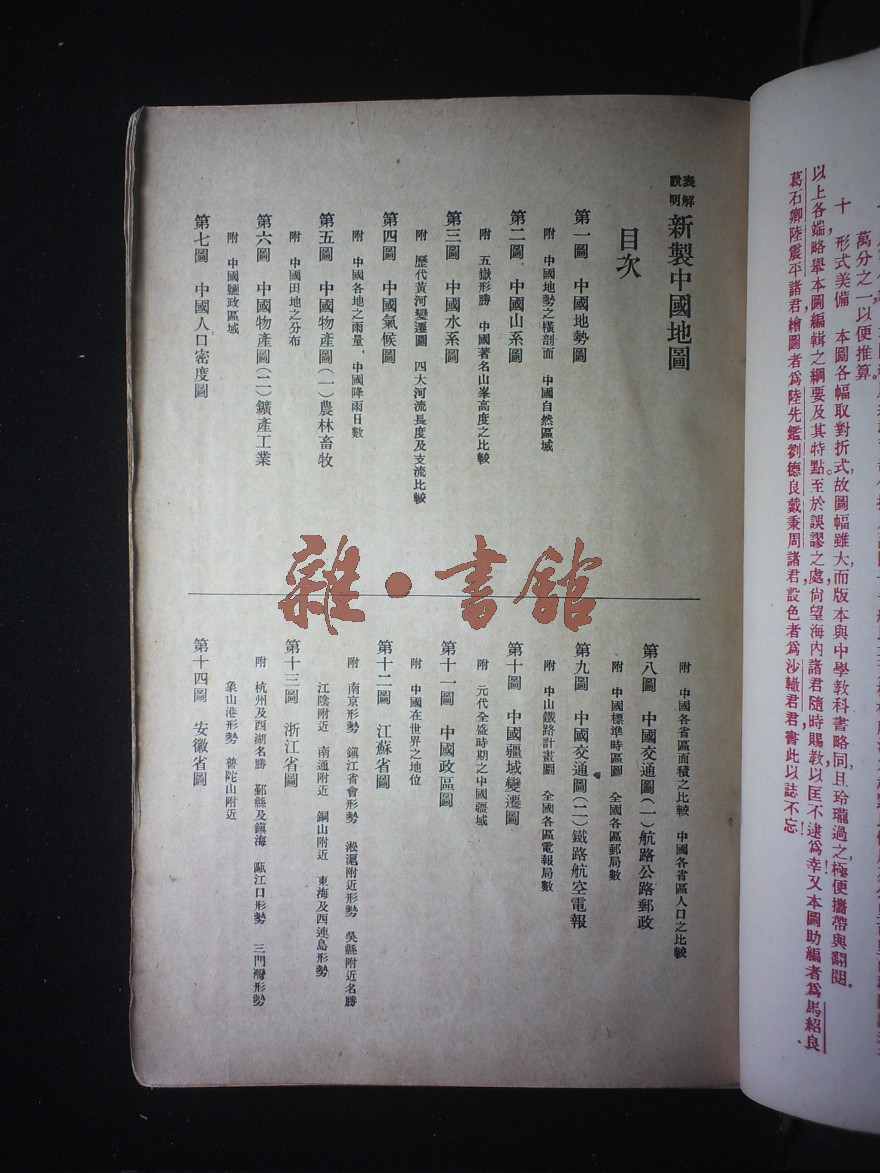 萬分之一以便推算。
十　形式美備　本圖各幅取對折式，故圖幅雖大，而版本與中學教科書略同，且玲瓏過之，極便攜帶與翻閱。
以上各端，略舉本圖編輯之綱要及其特點。至於誤謬之處，尙望海內諸君隨時賜教，以匡不逮爲幸！又本圖助編者爲馬紹良、
葛石卿、陸震平諸君，繪圖者爲陸先鑑、劉德良、戴秉周諸君，設色者爲沙轍君君，書此以誌不忘！
表解說明 新製中國地圖
目次
第一圖　中國地勢圖
附　中國地勢之橫剖面　中國自然區域
第二圖　中國山系圖
附　五嶽形勝　中國著名山峯高度之比較
第三圖　中國水系圖
附　歷代黃河變遷圖　四大河流長度及支流比較
第四圖　中國氣候圖
附　中國各地之雨量，中國降雨日數
第五圖　中國物產圖(一)農林畜牧
附　中國田地之分布
第六圖　中國物產圖(二)鑛產工業
附　中國鹽政區域
第七圖　中國人口密度圖
附　中國各省區面積之比較　中國各省區人口之比較
第八圖　中國交通圖(一)航路公路郵政
附　中國標準時區圖　全國各區郵局數
第九圖　中國交通圖(二)鐵路航空電報
附　中山鐵路計畫圖　全國各區電報局數
第十圖　中國疆域變遷圖
附　元代全盛時期之中國疆域
第十一圖　中國政區圖
附　中國在世界之地位
第十二圖　江蘇省圖
附　南京形勢　鎭江省會形勢　淞滬附近形勢　吳縣附近名勝
江陰附近　南通附近　銅山附近　東海及西連島形勢
第十三圖　浙江省圖
附　杭州及西湖名勝　鄞縣及鎭海　甌江口形勢　三門灣形勢
象山港形勢　普陀山附近
第十四圖　安徽省圖
雜·書館